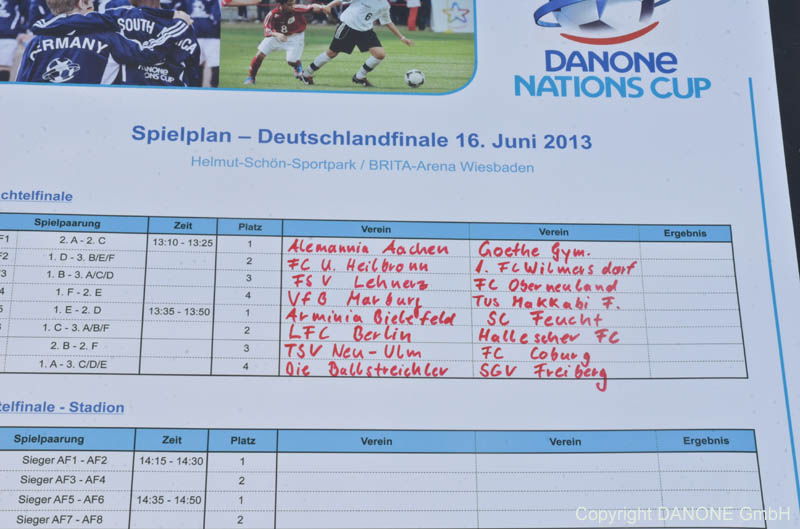 GERMANY
SOUTH AFRICA
DANONE
NATIONS CUP
DANONE
NATIONS CUP
Spielplan – Deutschlandfinale 16. Juni 2013
Helmut-Schön-Sportpark / BRITA-Arena Wiesbaden
chtelfinale
Spielpaarung Zeit Platz Verein Verein Ergebnis
F1 2. A - 2. C 13:10 - 13:25 1 Alemannia Aachen Goethe Gym.
F2 1. D - 3. B/E/F 2 FC U. Heilbronn 1. FC Wilmersdorf
F3 1. B - 3. A/C/D 3 FSV Lehnerz FC Oberneuland
4 1. F - 2. E 4 VfB Marburg Tus Makkabi F.
5 1. E - 2. D 13:35 - 13:50 1 Arminia Bielefeld SC Feucht
1. C - 3. A/B/F 2 LFC Berlin Hallescher FC
2. B - 2. F 3 TSV Neu-Ulm FC Coburg
1. A - 3. C/D/E 4 Die Ballstreichler SGV Freiberg
telfinale - Stadion
Spielpaarung Zeit Platz Verein Verein Ergebnis
Sieger AF1 - AF2 14:15 - 14:30 1
Sieger AF3 - AF4 2
Sieger AF5 - AF6 14:35 - 14:50 1
Sieger AF7 - AF8 2
Copyright DANONE GmbH